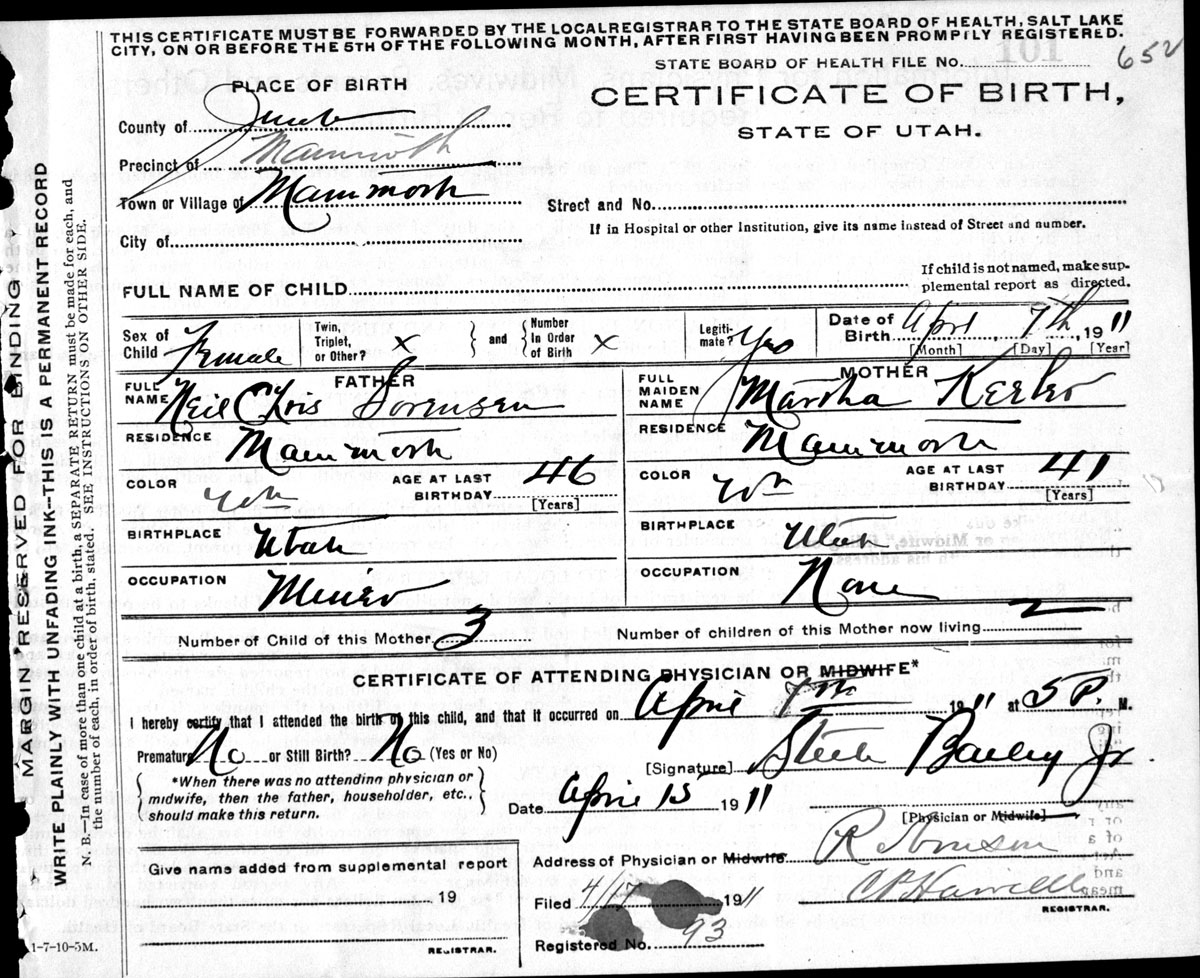 THIS CERTIFICATE MUST BE FORWARDED BY THE LOCAL REGISTRAR TO THE STATE BOARD OF HEALTH, SALT LAKE
CITY, ON OR BEFORE THE 5TH OF THE FOLLOWING MONTH, AFTER FIRST HAVING BEEN PROMPILY REGISTERED.
STATE BOARD OF HEALTH FILE NO. 101 652
PLACE OF BIRTH
CERTIFICATE OF BIRTH,
STATE OF UTAH.
County of Juab
Precinct of Mammoth
Town or Village of Mammoth
Street and No.
If in Hospital or other Institution, give its name instead of Street and number.
City of
If child is not named, make sup-
plemental report as directed.
FULL NAME OF CHILD
Sex of Child Female
Twin, Triplet, or Other? x
and
Number In Order of Birth x
Legiti-mate? Yes
Date of Birth April 7th, 1911
[Month] [Day] [Year]
FATHER
FULL NAME Neil Chris Sorensen
RESIDENCE Mammoth
COLOR Wh
AGE AT LAST BIRTHDAY 46
[Years]
BIRTHPLACE Utah
OCCUPATION Miner
MOTHER
FULL MAIDEN NAME Martha
RESIDENCE Mammoth
COLOR Wh
AGE AT LAST BIRTHDAY 41
[Years]
BIRTHPLACE Utah
OCCUPATION None
Number of Child of this Mother 3
Number of children of this Mother now living 2
CERTIFICATE OF ATTENDING PHYSICIAN OR MIDWIFE*
I hereby certify that I attended the birth of this child, and that it occurred on April 7th 1911 at 5 P. M.
Premature No or Still Birth? No (Yes or No)
[Signature] Steele Bailey Jr
*When there was no attending physician or
midwife, then the father, householder, etc.,
should make this return.
Date April 15 1911
[Physician or Midwife]
Give name added from supplemental report
19
REGISTRAR.
Address of Physician or Midwife
Filed 4/17 1911
REGISTRAR.
Registered No. 93
1-7-10-5M.
MARGIN RESERVED FOR BINDING
WRITE PLAINLY WITH UNFADING INK—THIS IS A PERMANENT RECORD
N. B.—In case of more than one child at a birth, a SEPARATE RETURN must be made for each, and
the number of each, in order of birth, stated. SEE INSTRUCTIONS ON OTHER SIDE.